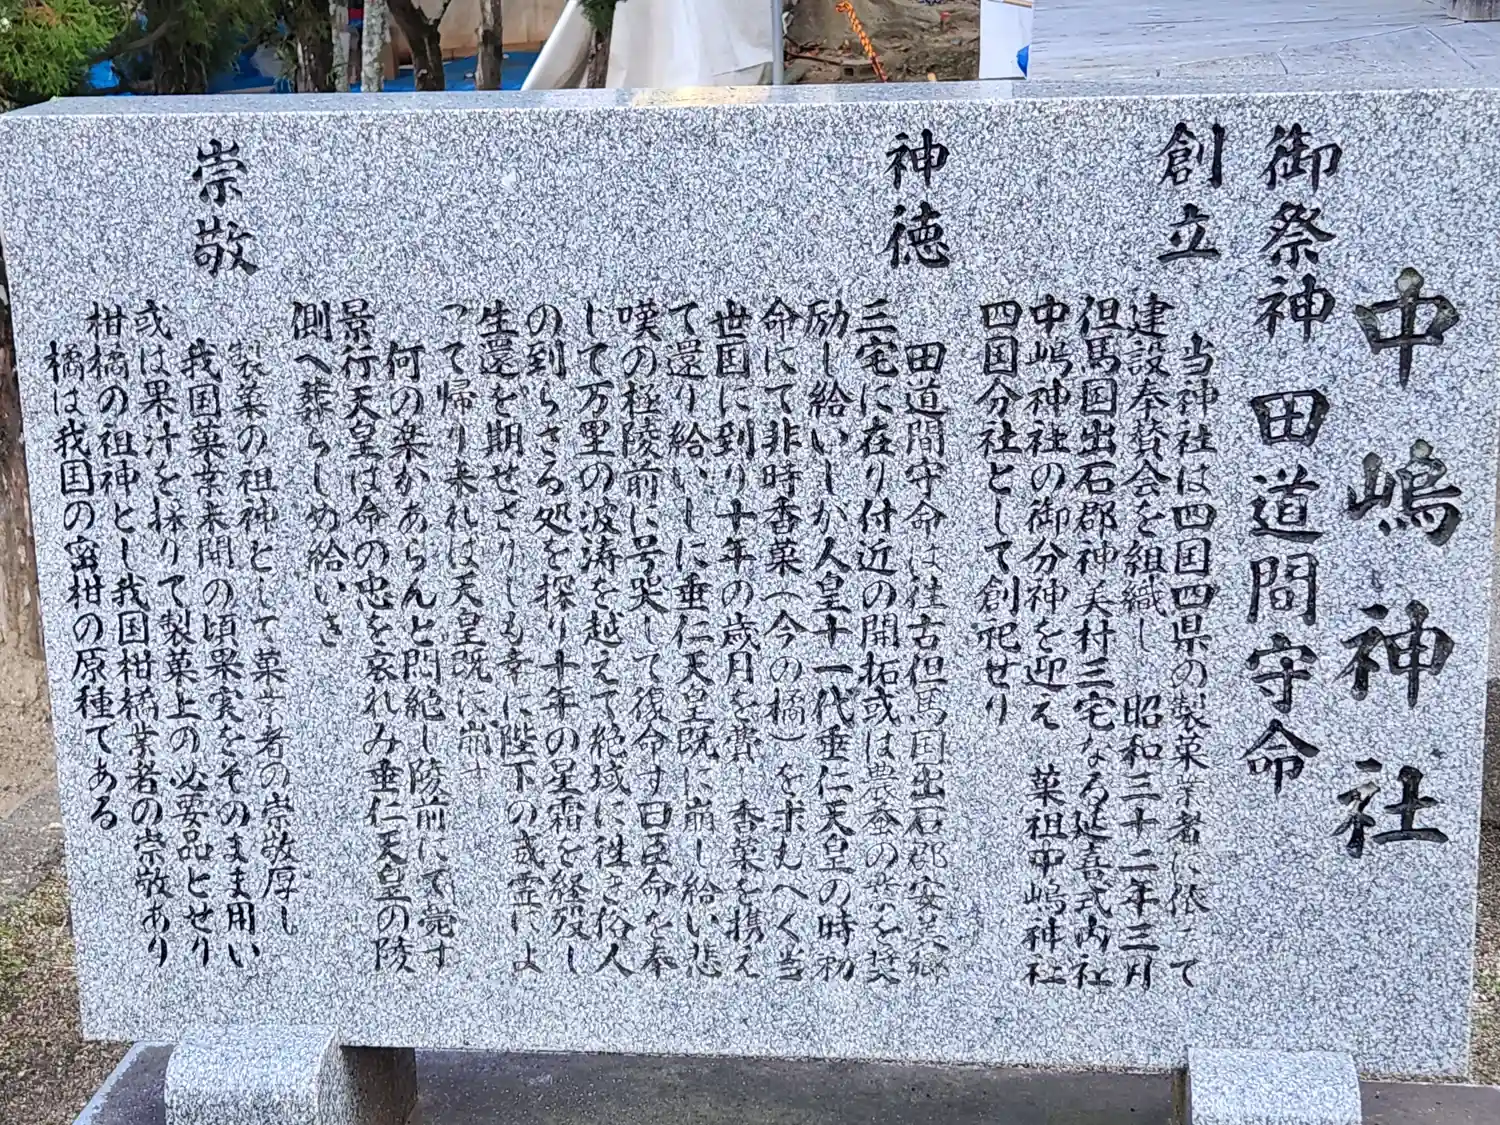 中嶋神社
御祭神 田道間守命
創立
当神社は四国四県の製菓業者に依って
建設奉賛会を組織し 昭和三十二年三月
但馬国出石郡神美村三宅なる延喜式内社
中嶋神社の御分神を迎え 菓祖中嶋神社
四国分社として創祀せり
神徳
田道間守命は往古但馬国出石郡安美郷
三宅に在り付近の開拓或は農蚕の業を奨
励し給いしが人皇十一代垂仁天皇の時勅
命にて非時香菓(今の橘)を求むべく当
世国に到り十年の歳月を費し香菓を携え
て還り給いしに垂仁天皇既に崩し給い悲
嘆の極陵前に号哭して復命す曰臣命を奉
じて万里の波涛を越えて絶域に往き俗人
の到らざる処を探り十年の星霜を経歿し
生還を期せざりしも幸に陛下の威霊によ
って帰り来れは天皇既に崩す
何の楽かあらんと悶絶し陵前にて薨す
景行天皇は命の忠を哀れみ垂仁天皇の陵
側へ葬らしめ給いき
崇敬
製菓の祖神として菓業者の崇敬厚し
我国菓業未開の頃果実をそのまま用い
或は果汁を採りて製菓上の必要品とせり
柑橘の祖神とし我国柑橘業者の崇敬あり
橘は我国の蜜柑の原種てある